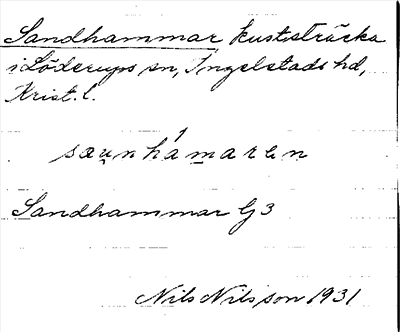 Sandhammar, kuststräcka
i Löderups sn, Ingelstads hd,
Krist. l.
sæunhámaren
Sandhammar G3
Nils Nilsson 1931